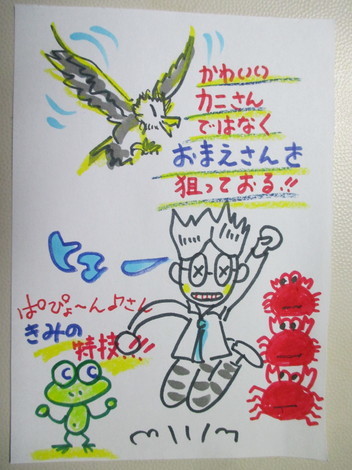 かわいい
カニさん
ではなく
おまえさんを
狙っておる!!
ヒューー
ぱぴょ〜ん♪さん
きみの
特技!!